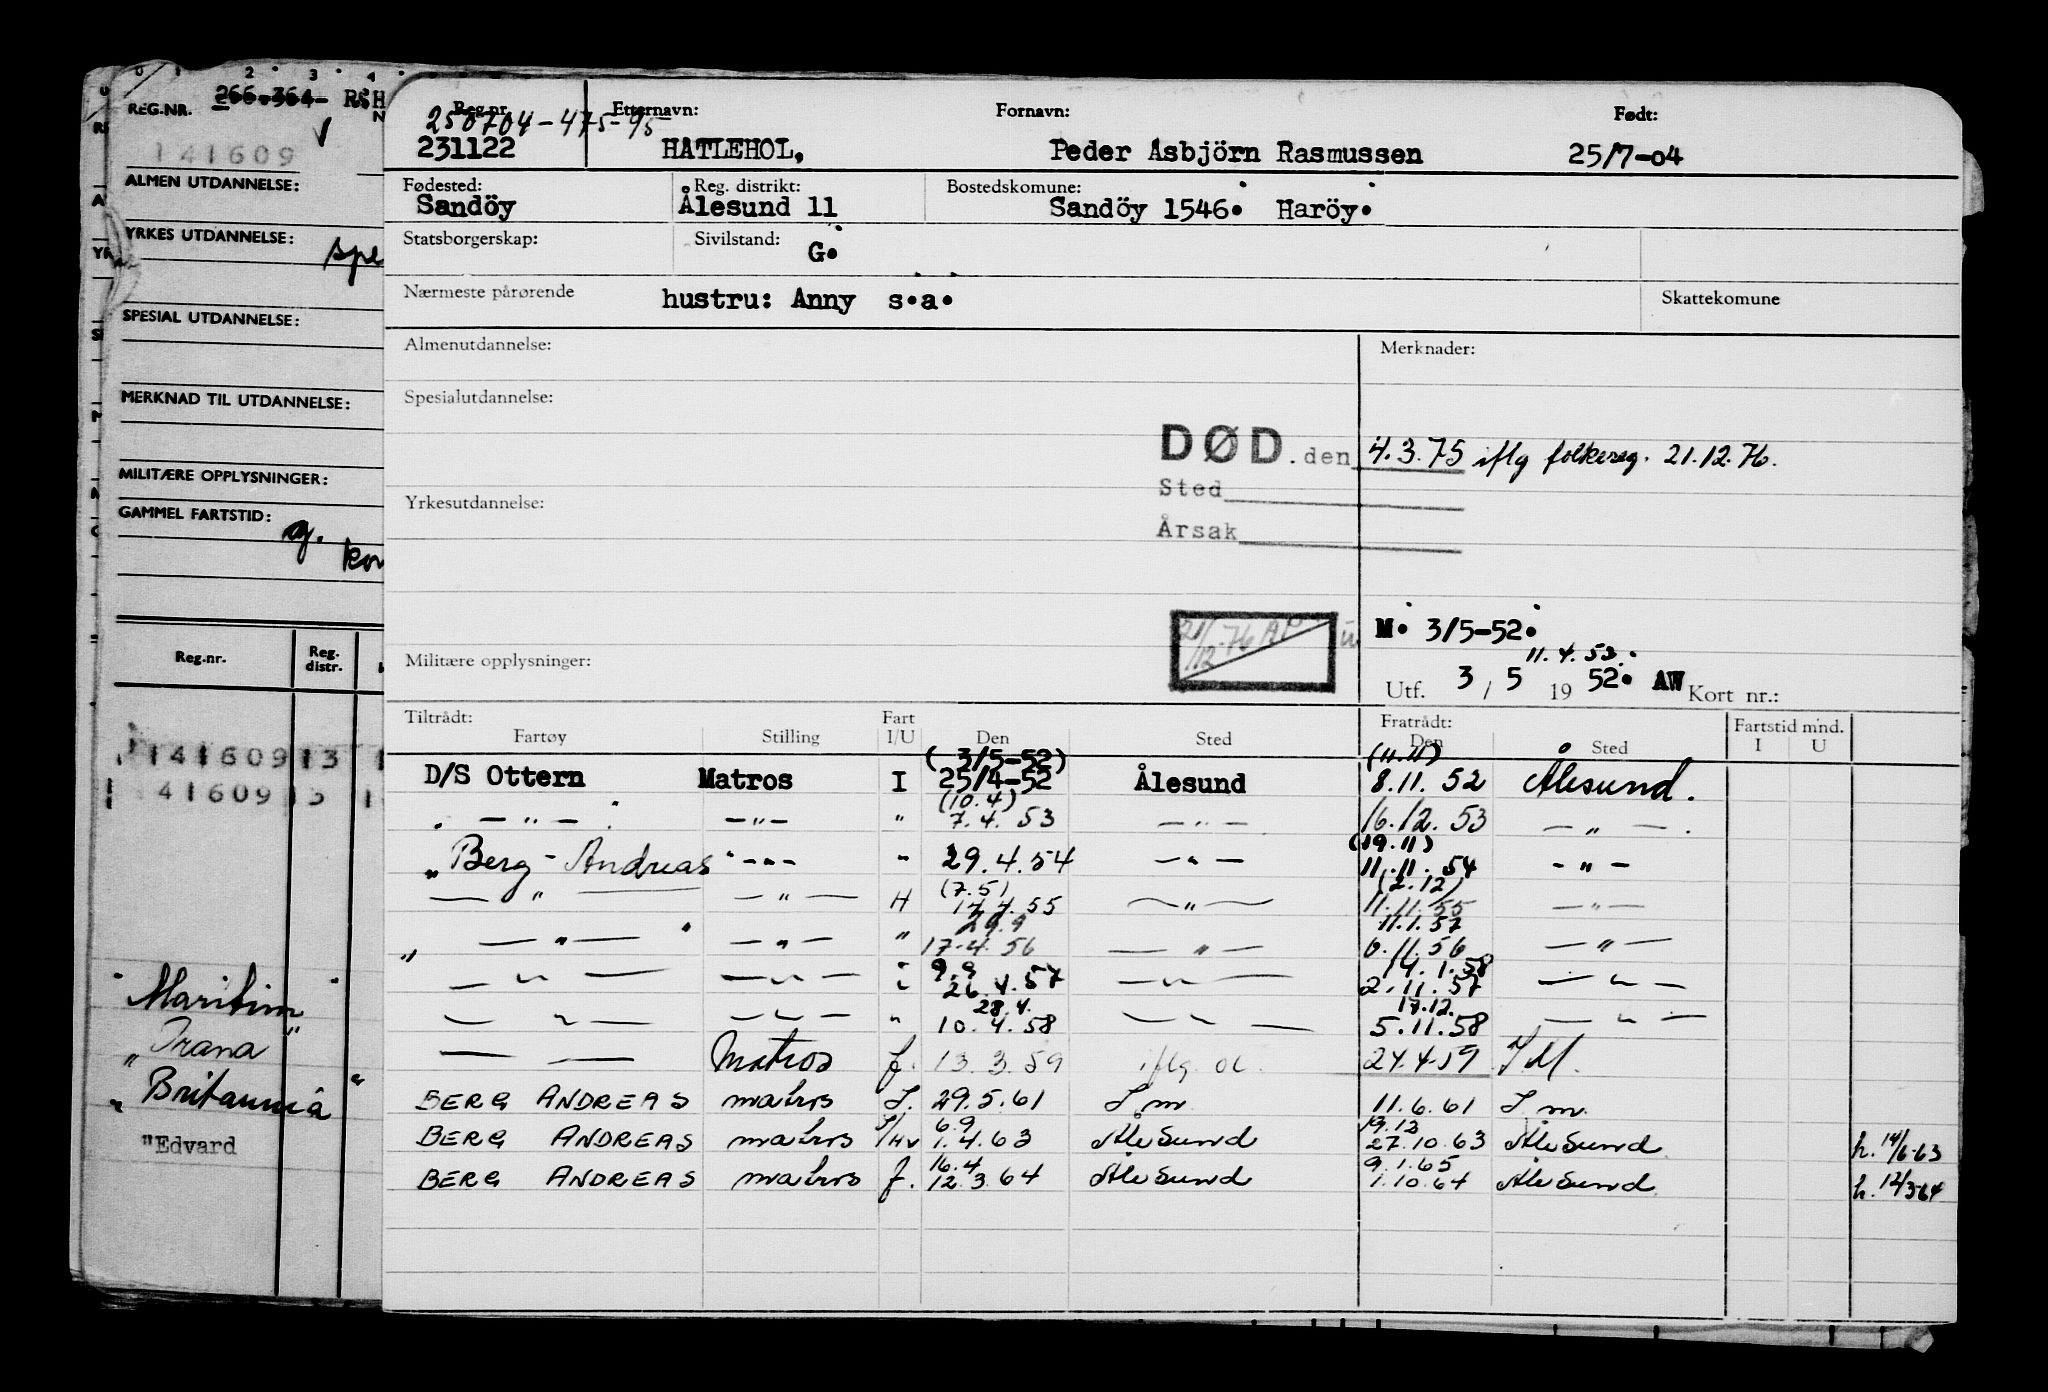 0 1 2 3 4
REG.NR. 266.364- RSH
141609
ALMEN UTDANNELSE:
YRKES UTDANNELSE: spe
SPESIAL UTDANNELSE:
MERKNAD TIL UTDANNELSE:
MILITÆRE OPPLYSNINGER:
GAMMEL FARTSTID:
kon
Reg.nr. Reg. distr.
141609 13 1
141609 13 1
"Maritim"
"Trana"
"Britannia"
"Edvard
Reg.nr. Etternavn: Fornavn: Født:
250704-475-95
231122 HATLEHOL, Peder Asbjörn Rasmussen 25/7-04
Fødested: Reg. distrikt: Bostedskomune:
Sandöy Ålesund 11 Sandöy 1546. Haröy.
Statsborgerskap: Sivilstand: G.
Nærmeste pårørende hustru: Anny s.a. Skattekomune
Almenutdannelse: Merknader:
Spesialutdannelse:
DØD.den 4.3.75 iflg folkereg. 21.12.76.
Sted
Yrkesutdannelse:
Årsak
21/12.76 AP
M. 3/5-52.
11.4.53.
Militære opplysninger: Utf. 3 / 5 19 52. AW Kort nr.:
Tiltrådt: Fart Fratrådt: Fartstid mnd.
Fartøy Stilling I/U Den Sted Den Sted I U
(3/5-52) (11.11)
D/S Ottern Matros I 25/4-52 Ålesund 8.11.52 Ålesund.
(10.4)
— " — — " — " 7.4.53 — " — 16.12.53 — " —.
(19.11)
"Berg-Andreas " — " — " 29.4.54 — " — 11.11.54 — " —
(7.5) (2.12)
— " — — " — H 17.4.55 — " — 11.11.55 — " —
29.9 11.1.57
" — " — " — " — " 17.4.56 — " — 6.11.56 — " —
9.9 14.1.58
— " — — " — 26.4.57 — " — 2.11.57 — " —
28.4. 17.12.
— " — — " — " 10.4.58 — " — 5.11.58 — " —
— — Matros f. 13.3.59 iflg. ol. 24.4.59 I M.
BERG ANDREAS matros I. 29.5.61 I m 11.6.61 I m.
6.9 19.12
BERG ANDREAS matros I/Hv 1.4.63 Ålesund 27.10.63 Ålesund h. 14/6-63
16.4 9.1.65
BERG ANDREAS matros f. 12.3.64 Ålesund 1.10.64 Ålesund h. 12/3-64